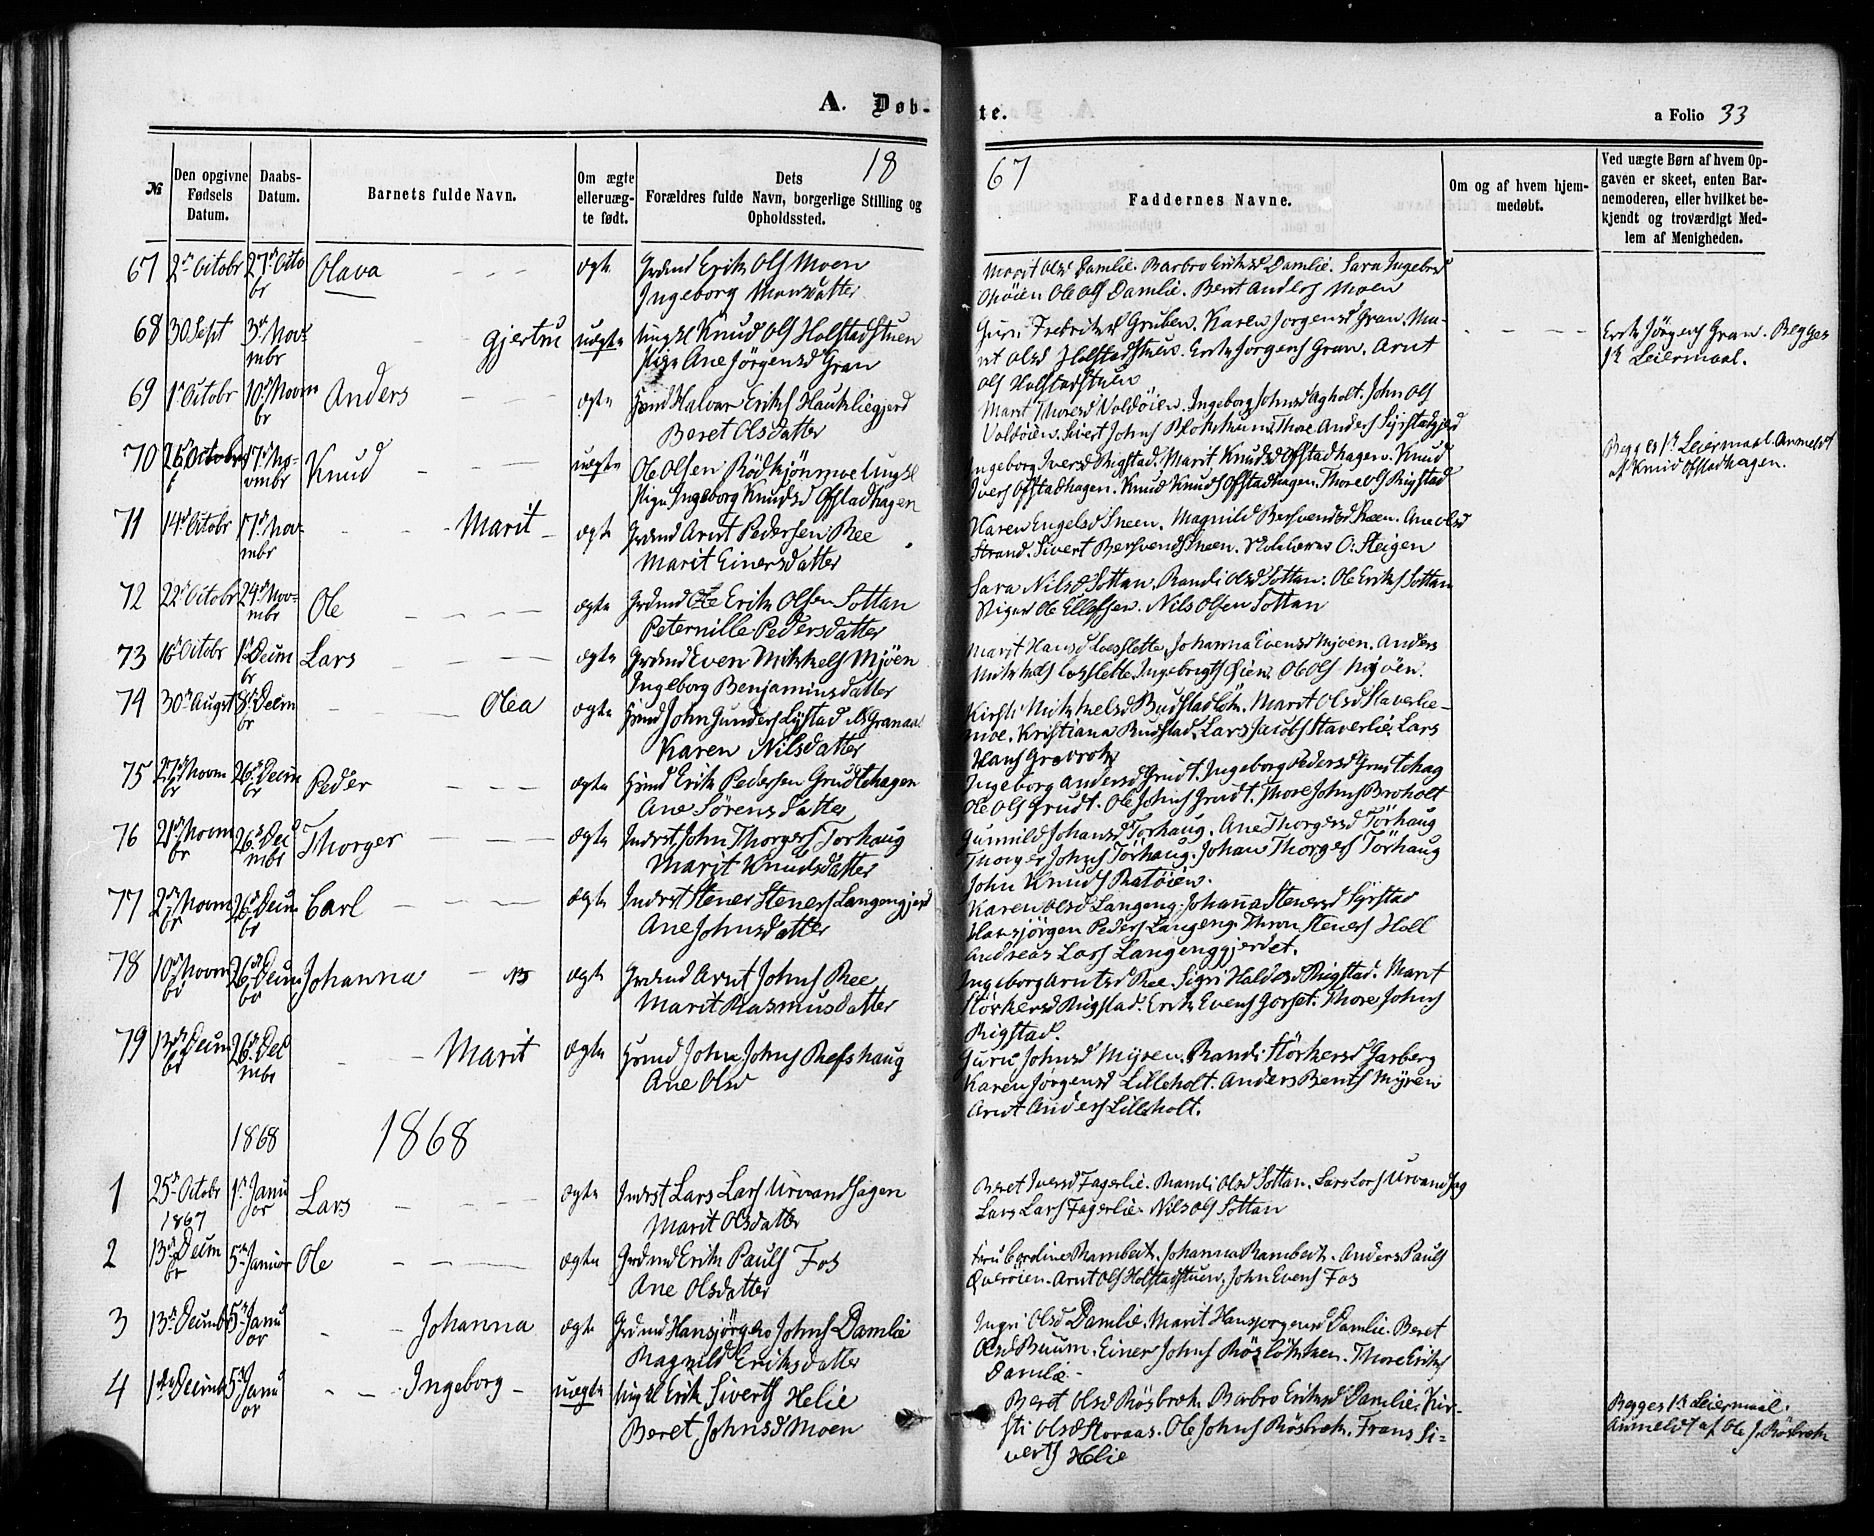 A. Døb-
te.
a Folio 33
18
67
№
Den opgivne Fødsels Datum.
Daabs-Datum.
Barnets fulde Navn.
Om ægte eller uæg-te født.
Dets
Forældres fulde Navn, borgerlige Stilling og Opholdssted.
Faddernes Navne.
Om og af hvem hjem-medøbt.
Ved uægte Børn af hvem Op-gaven er skeet, enten Bar-nemoderen, eller hvilket be-kjendt og troværdigt Med-lem af Menigheden.
67 2den Octobr 27de Octobr Olava ægte Grdmd Erik Ols Moen
Ingeborg Monsdatter
Marit Olsd Damlie. Barbro Eriksd Damlie. Sara Ingebrd
Opøien Ole Ols Damlie. Bent Anders Moen
68 30 Sept 3de Novmbr Gjertru uægte Ungkl Knud Ols Holstadstuen
Pige Ane Jørgensd Gran
Guri Fredriksd Gruben. Karen Jørgensd Gran. Ma-
rit Olsd Holstadstuen. Erik Jørgens Gran. Arnt
Ols Holstadstuen
Erik Jörgens Gran. Begges
1ste Leiermaal.
69 1ste Octobr 10de Novmbr Anders ægte Hsmd Halvor Eriks Haukliegjerd
Beret Olsdatter
Marit Thoresd Voldøien. Ingeborg Johnsd Agholt. John Ols
Voldøien. Sivert Johns Thore Anders
70 26de Octobr 17de Novmbr Knud uægte Ole Olsen Rödkjönmoe Ungkl
Pige Ingeborg Knudsd Ofstadhagen
Ingeborg Iversd Rigstad. Marit Knudsd Ofstadhagen. Knud
Ivers Ofstadhagen. Knud Knuds Ofstadhagen. Thore Ols Rigstad
Begges 1ste Leiermaal. Anmeldt
af Knud Ofstadhagen.
71 14de Octobr 17de Novmbr Marit ægte Grdmd Arnt Pedersen Ree
Marit Einersdatter
Karen Engelsd Sneen. Magnild Bersvendsd Sneen. Ane Olsd
Strand. Sivert Bersvends Sneen. O. Steigen
72 22de Octobr 24de Novmbr Ole ægte Grdmd Ole Erik Olsen Sottan
Peternille Pedersdatter
Sara Nilsd Sottan. Randi Olsd Sottan. Ole Eriks Sottan
Ole Ellefsen. Nils Olsen Sottan
73 16de Octobr 1ste Decmbr Lars ægte Grdmd Even Mikkels Mjöen
Ingeborg Benjaminsdatter
Marit Hansd Loeslette, Johanna Evensd Mjoen. Anders
Mikkels Loeslette. Ingebrigt Ole Ols Mjöen.
74 30te August 8de Decmbr Olea ægte Hsmd John Gunders Lystad
Karen Nilsdatter
Kirsti Mikkelsd Marit Olsd Staverlie-
moe. Kristiana Rudstad. Lars Jacobs Staverlie. Lars
Hans Gravrok
75 27de Novmbr 26de Decmbr Peder ægte Hsmd Erik Pedersen Grudthagen
Ane Sørensdatter
Ingeborg Andersd Grudt. Ingeborg Pedersd Grudthag
Ole Ols Grudt. Ole Johns Grudt. Thore Johns Broholt
76 21de Novmbr 26de Decmbr Thorger ægte Indrst John Thorgers Torhaug
Marit Knudsdatter
Gunnild Johansd Torhaug. Ane Thorgersd Törhaug
Thorger Johns Törhaug. Johan Thorgers Törhaug
John Knuds Ratøien.
77 2den Novmbr 26de Decmbr Carl ægte Indrst Stener Steners Langengjerd
Ane Johnsdatter
Karen Olsd Langeng. Johanna Stenersd Syrstad
Hansjörgen Peders Langeng. Thron Steners Holl
Andreas Lars Langenggjerdet.
78 10de Novmbr 26de Decmbr Johanna NB ægte Grdmd Arnt Johns Ree
Marit Rasmusdatter
Ingeborg Arntsd Ree. Sigri Haldosd Rigstad. Marit
Störkersd Rigstad. Erik Evens Gorset. Thore Johns
Rigstad.
79 13de Decmbr 26de Decmbr Marit ægte Hsmd John Johns Refshaug
Ane Olsd
Guru Johnsd Myren. Randi Störkersd Garberg
Karen Jørgensd Lilleholt. Anders Bents Myren
Arnt Anders Lilleholt.
1868 1868
1 25de Octobr 1867 1ste Januar Lars ægte Indrst Lars Lars Urvandhagen
Marit Olsdatter
Beret Iversd Fagerlie. Randi Olsd Sottan. Lars Lars Urvandhag
Lars Lars Fagerlie. Nils Ols Sottan
2 13de Decmbr 5te Januar Ole ægte Grdmd Erik Pauls Fos
Ane Olsdatter
Fru Cordine Rambeck. Johanna Rambeck. Anders Pauls
Qverøien. Arnt Ols Holstadstuen. John Evens Fos
3 13de Decmbr 5te Januar Johanna ægte Grdmd Hansjörgen Johns Damlie
Magnild Eriksdatter
Ingri Olsd Damlie. Marit Hansjorgensd Damlie. Beret
Olsd Buum. Einer Johns Röslökken. Thore Eriks
Damlie.
4 1ste Decmbr 5te Januar Ingeborg uægte Ungkl Erik Siverts Helie
Beret Johnsd Moen
Beret Olsd Rösbrok. Barbro Eriksd Damlie. Kir-
sti Olsd Storaas. Ole Johns Rösbrok. Frans Si-
verts Helie
Begges 1ste Leiermaal.
Anmeldt af Ole J. Rösbrok